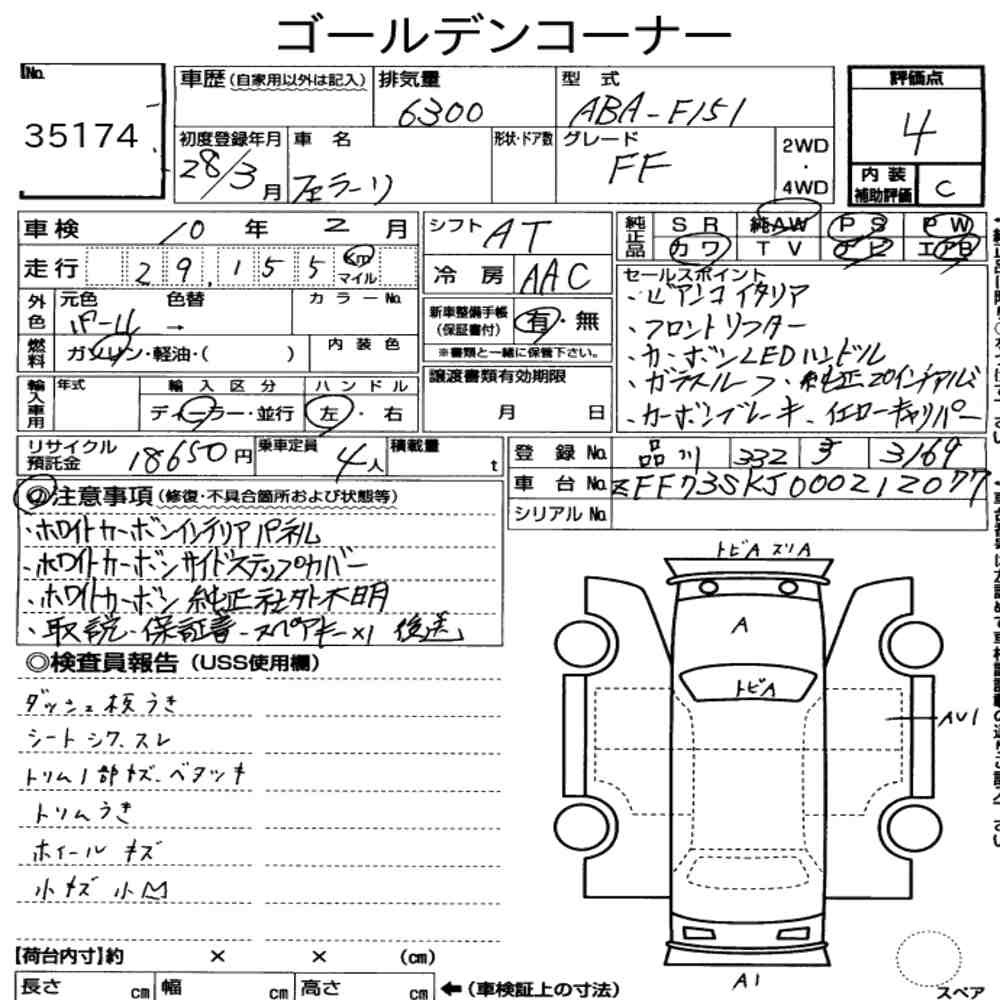 ゴールデンコーナー
No.
35174
車歴(自家用以外は記入)
排気量
6300
型 式
ABA-F151
評価点
4
内装補助評価
C
初度登録年月
28/3月
車 名
フェラーリ
形状・ドア数
グレード
FF
2WD
・
4WD
車検 10 年 2 月
走行 29,155 Km マイル
シフト AT
冷房 AAC
純正品 SR 純AW PS PW
カワ TV ナビ エアB
外色 元色 色替 カラーNo.
パール →
燃料 ガソリン・軽油・( )
内装色
新車整備手帳(保証書付) 有・無
※書類と一緒に保管下さい。
セールスポイント
・ビアンコイタリア
・フロントリフター
・カーボンLEDハンドル
・ガラスルーフ・純正20インチアルミ
・カーボンブレーキ、イエローキャリパー
輸入車用 年式 輸入区分 ハンドル
ディーラー・並行 左・右
譲渡書類有効期限
月 日
リサイクル預託金 18650円
乗車定員 4人
積載量 t
登録No. 品川 332 す 3169
車台No. ZFF73SKJ000212077
シリアルNo.
◎注意事項(修復・不具合箇所および状態等)
・ホワイトカーボンインテリアパネル
・ホワイトカーボンサイドステップカバー
・ホワイトカーボン 純正社外不明
・取説・保証書・スペアキー×1 後送
◎検査員報告(USS使用欄)
ダッシュ板うき
シートシワ.スレ
トリム1部キズ.ベタツキ
トリムうき
ホイールキズ
小キズ小凹
トビA スリA
A
トビA
AU1
A1
スペア
【荷台内寸】約 × × (cm)
長さ cm 幅 cm 高さ cm ←(車検証上の寸法)